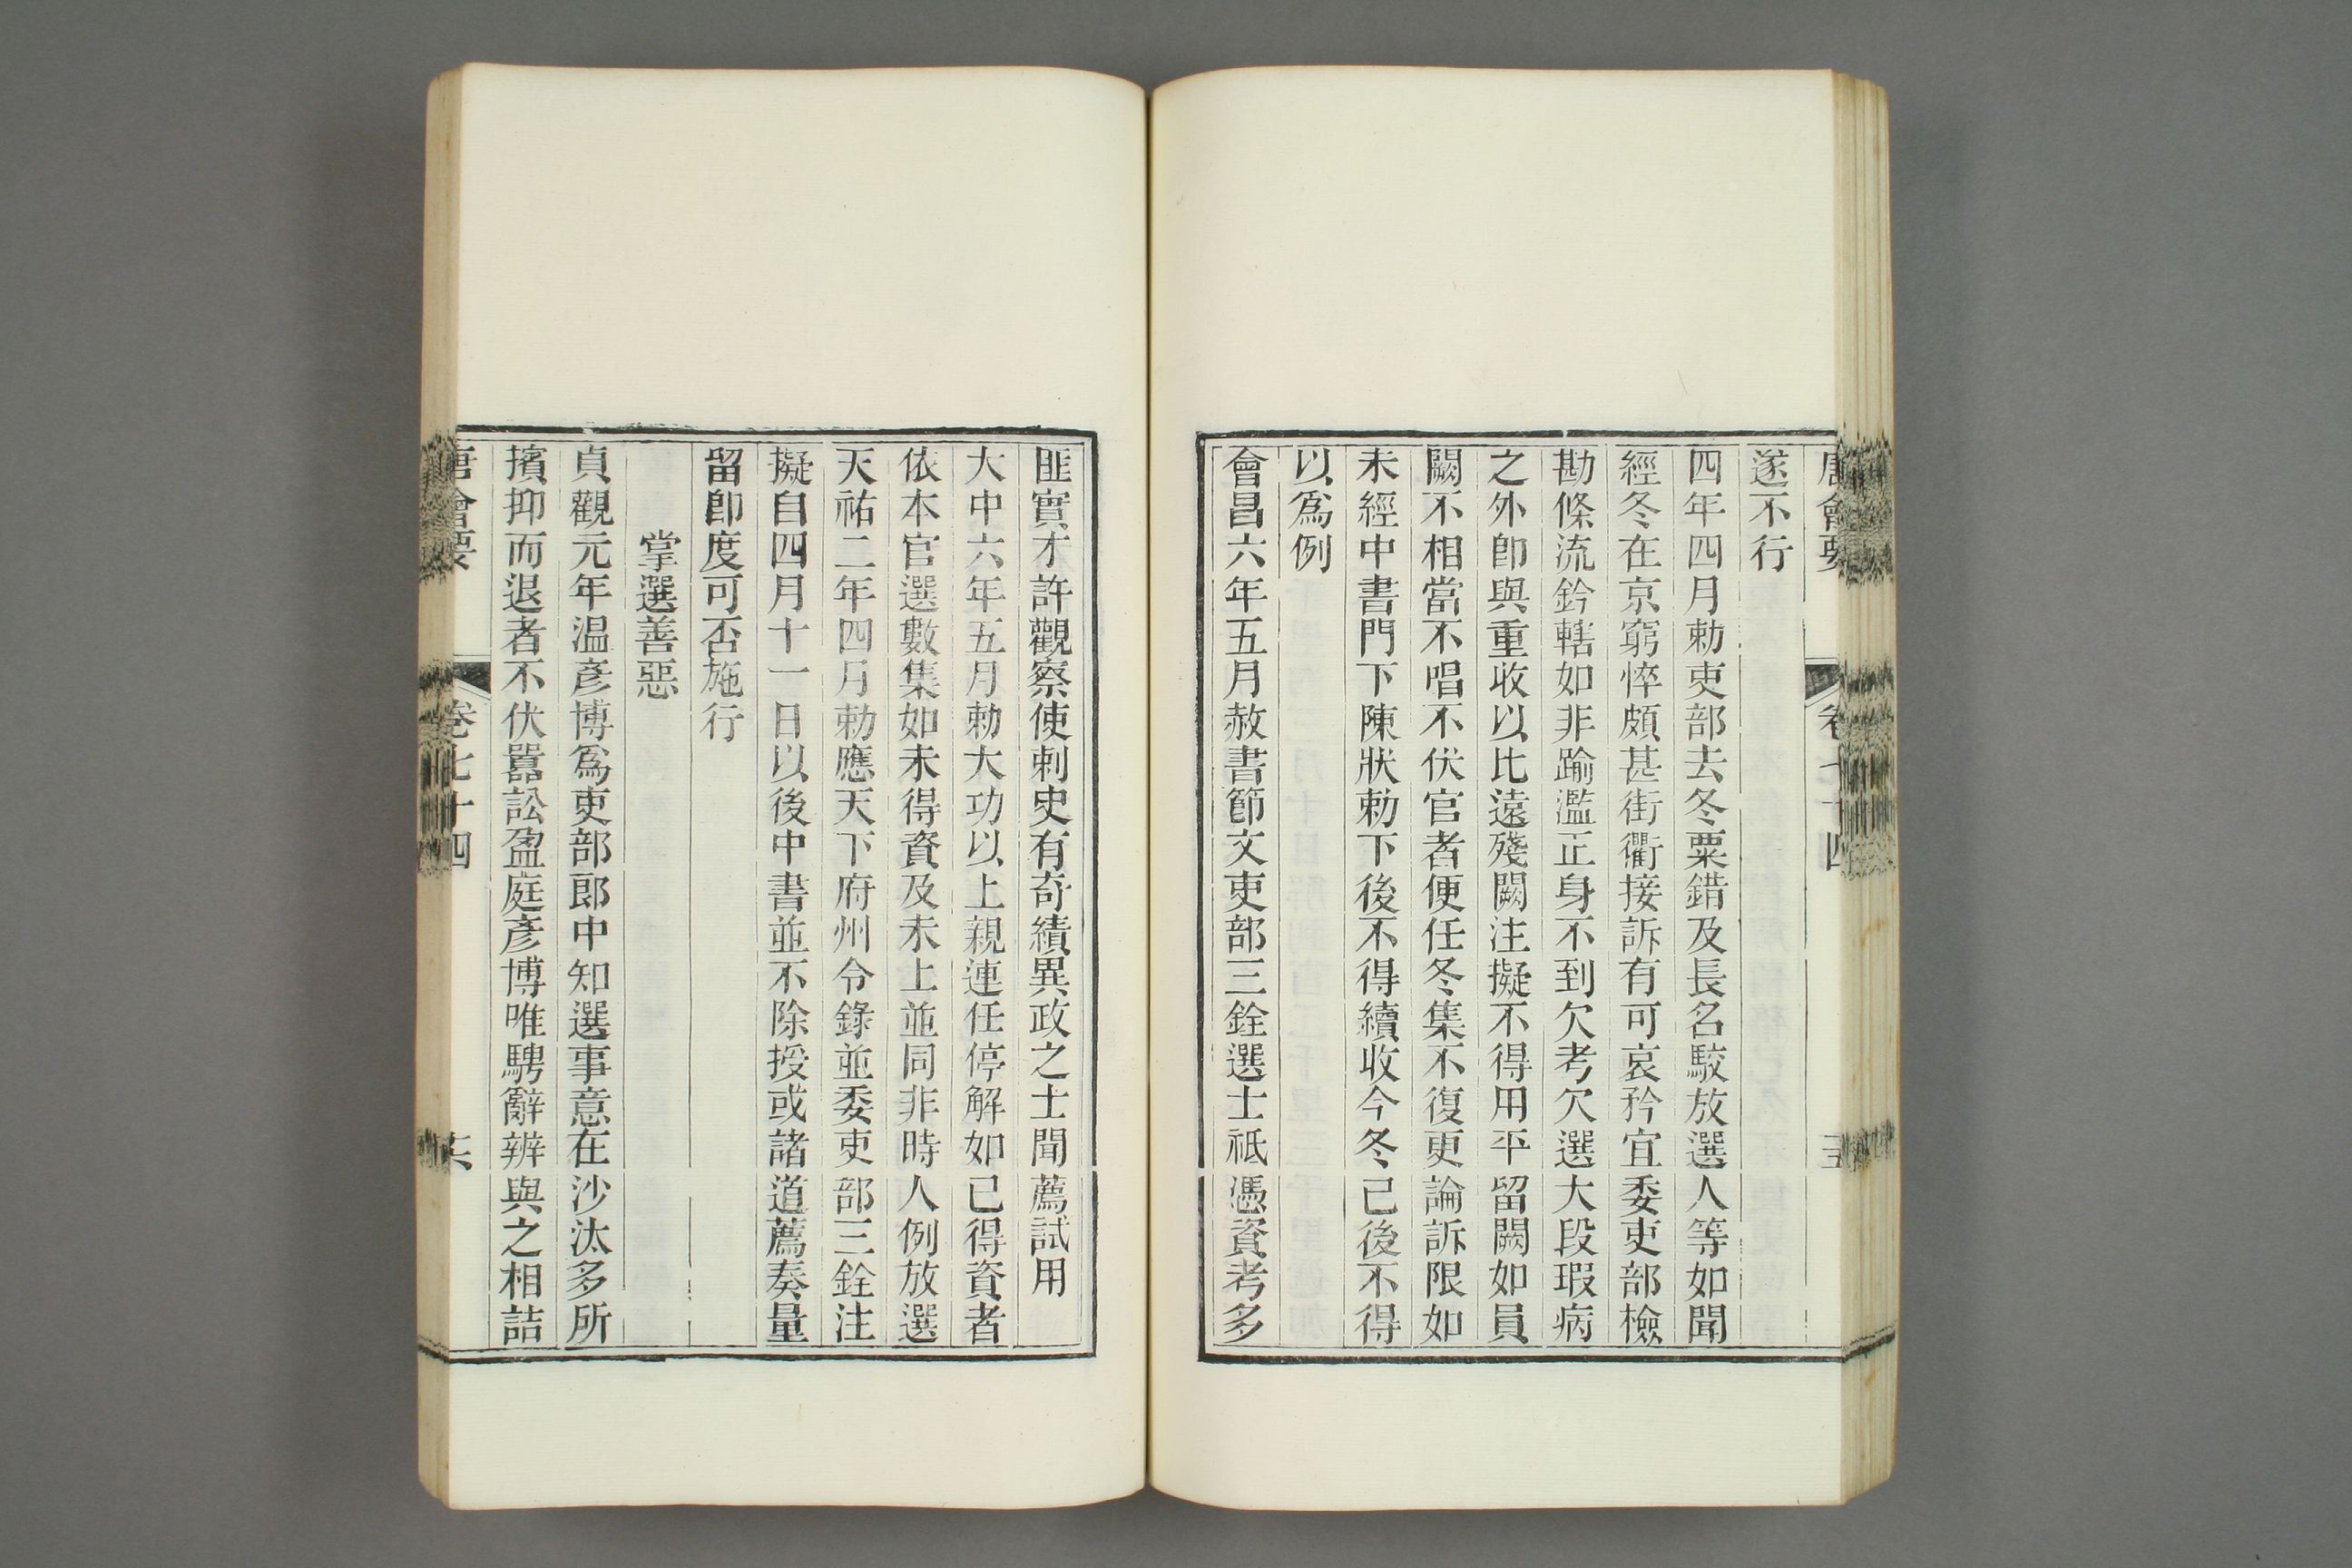 唐會要 卷七十四 十五
遂不行
四年四月勅吏部去冬粟錯及長名駮放選人等如聞
經冬在京窮悴頗甚街衢接訴有可哀矜宜委吏部檢
勘條流鈐轄如非踰濫正身不到欠考欠選大段瑕病
之外卽與重收以比遠殘闕注擬不得用平留闕如員
闕不相當不唱不伏官者便任冬集不復更論訴限如
未經中書門下陳狀勅下後不得續收今冬已後不得
以爲例
會昌六年五月赦書節文吏部三銓選士祗憑資考多
匪實才許觀察使刺史有奇績異政之士聞薦試用
大中六年五月勅大功以上親連任停解如已得資者
依本官選數集如未得資及未上並同非時人例放選
天祐二年四月勅應天下府州令錄並委吏部三銓注
擬自四月十一日以後中書並不除授或諸道薦奏量
留卽度可否施行
掌選善惡
貞觀元年温彥博爲吏部郎中知選事意在沙汰多所
擯抑而退者不伏嚚訟盈庭彥博唯騁辭辨與之相詰
唐會要 卷七十四 十六